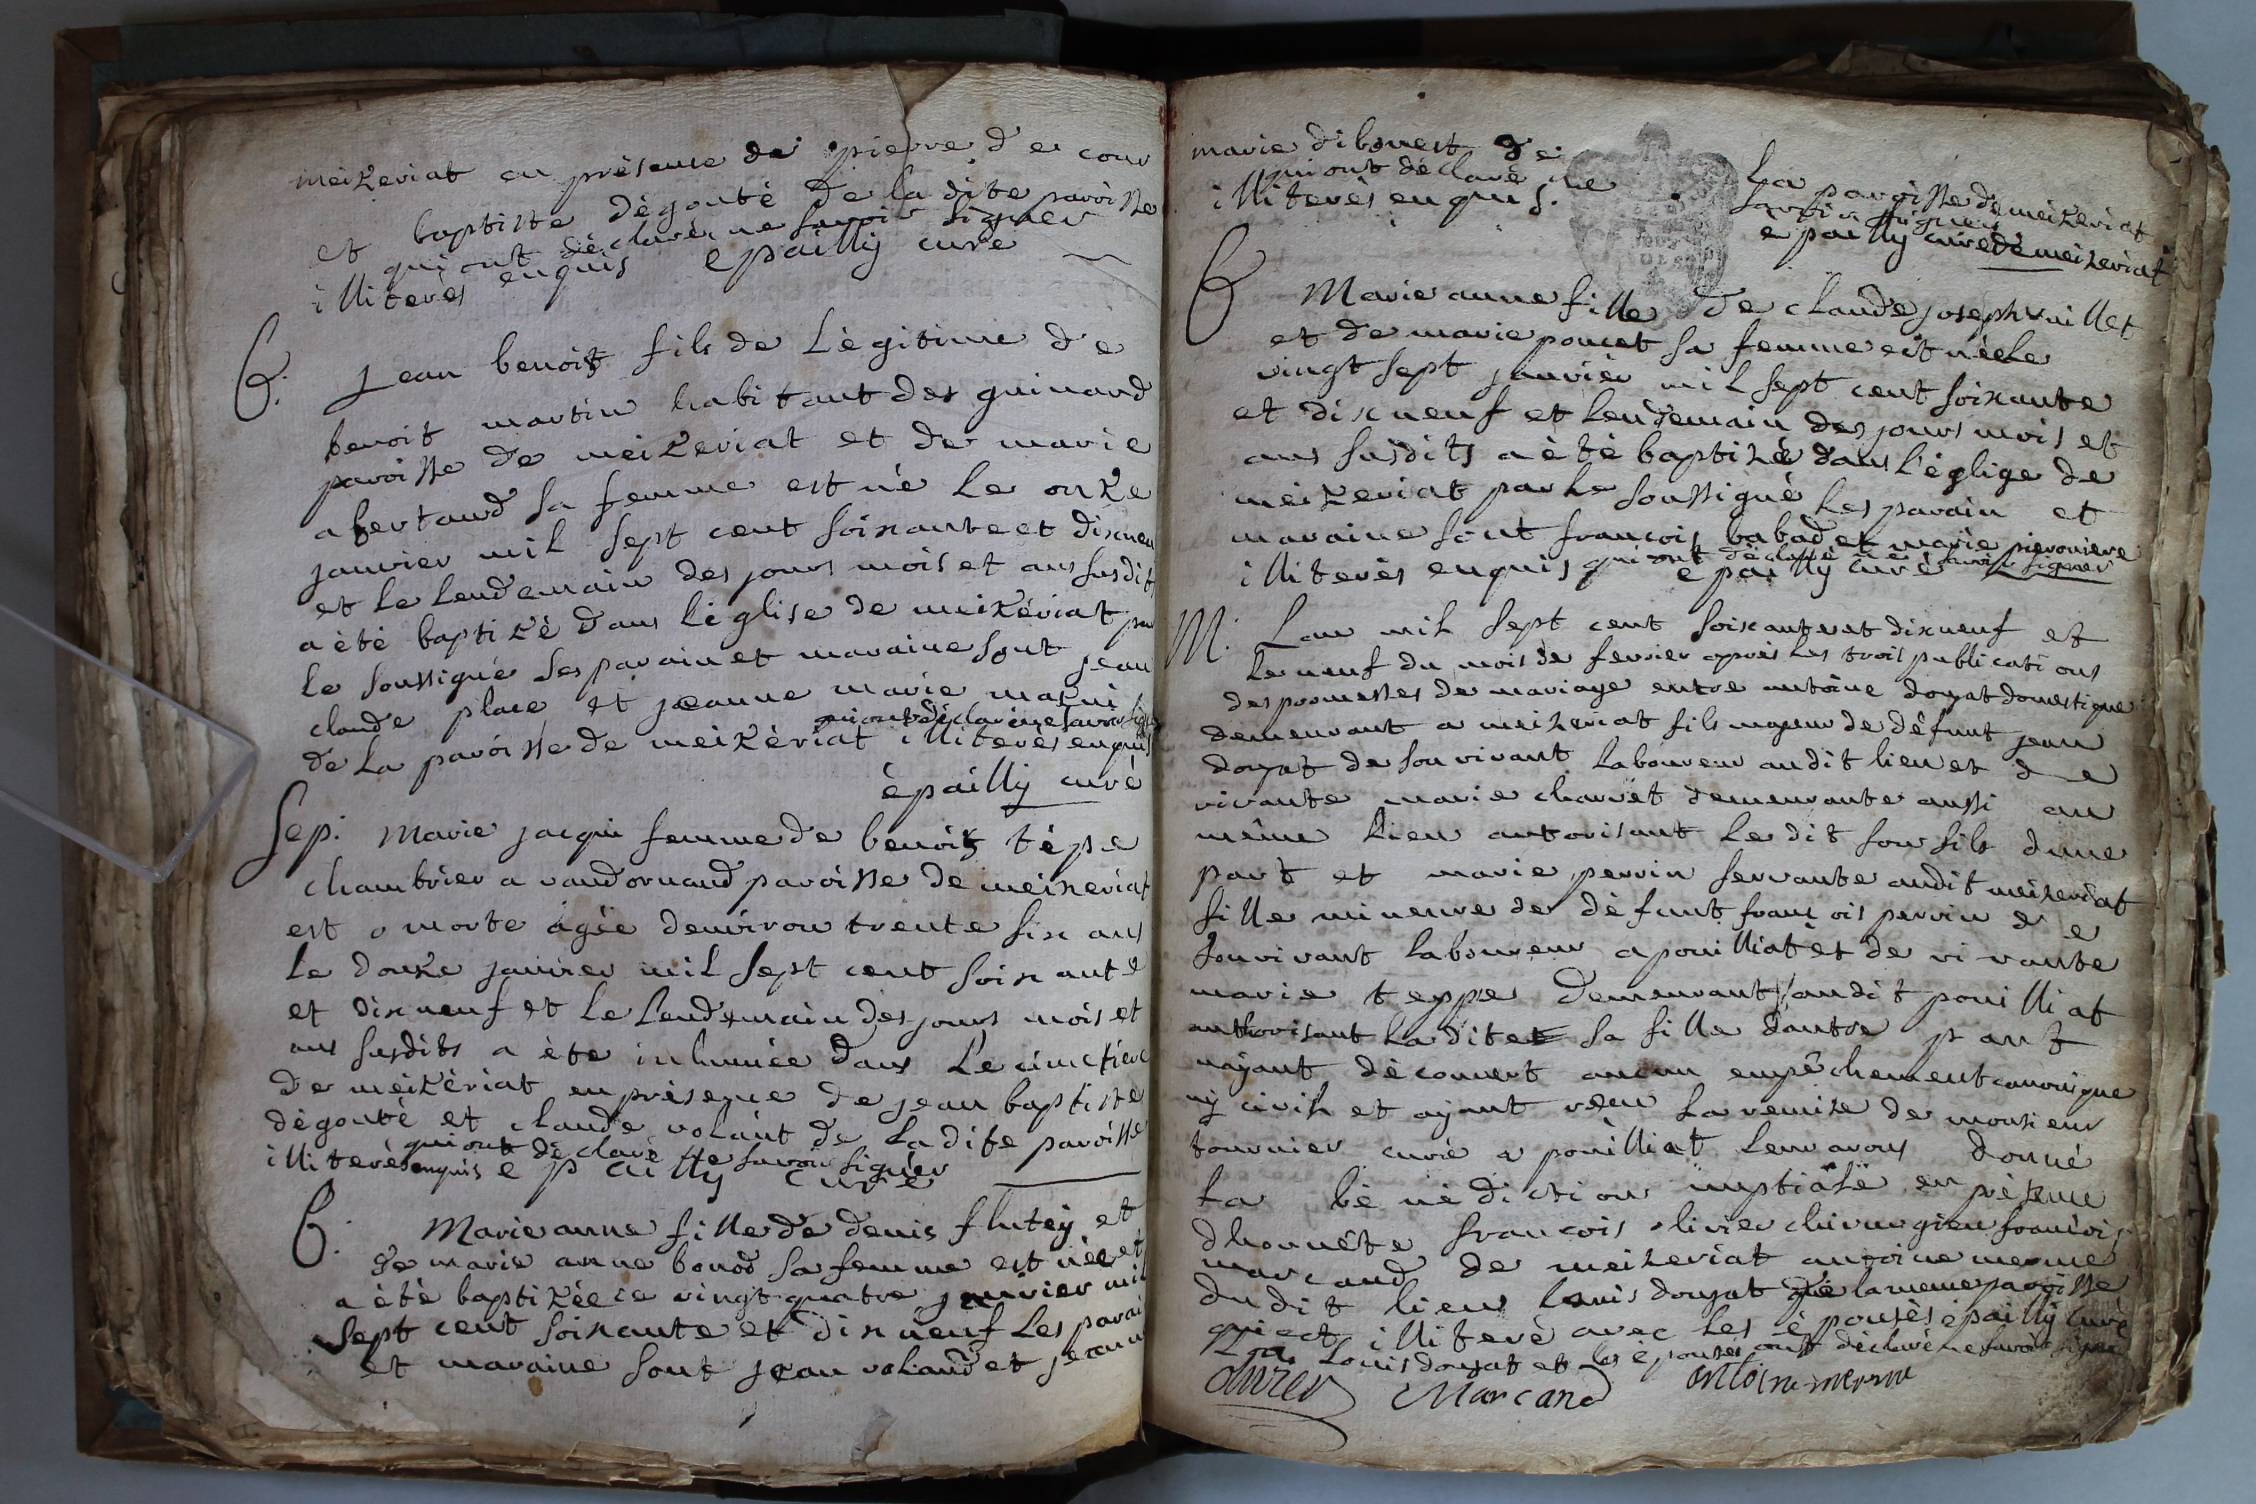 meizeriat en présence de pierre de cour
et baptiste dégouté de la dite paroisse
qui ont déclaré ne savoir signer
illiterés enquis epailly curé
B. Jean benoit fils de Légitime de
benoit martin habitant des guinand
paroisse de meizeriat et de marie
afertaud sa femme est né le onze
janvier mil sept cent soixante et dixneu
et le lendemain des jours mois et ans susdits
a été baptizé dans l'église de meizériat par
le soussigné ses parain et maraine sont jean
claude place et jeanne marie
qui ont déclaré ne savoir
de la paroisse de meizériat illiterés enquis
épailly curé
Sep. Marie jacqui femme de benoit tépe
chambrier a vandornand paroisse de meizeriat
est morte agée denviron trente six ans
le douze janvier mil sept cent soixante
et dixneuf et le lendemain des jours mois et
ans susdits a été inhumée dans Le cimetiere
de meizériat en présence de jean baptiste
dégouté et claude volant de la dite paroisse
qui ont déclaré ne savoir signer
illiterés enquis epailly curé
B. Marie anne fille de denis flutey et
de marie anne bonod sa femme est née et
a été baptizée le vingt quatre janvier mil
sept cent soixante et dixneuf Les parai
et maraine sont jean voland et jeanne
marie dibonest de La paroisse de meizeriat
qui ont déclaré ne savoir signer
illiterés enquis. epailly curé de meizeriat
B Marie anne fille de claude joseph vuillet
et de marie poncet sa femme est née le
vingt sept janvier mil sept cent soixante
et dixneuf et lendemain des jours mois et
ans susdits a été baptizée dans l'églige de
meizeriat par le soussigné les parain et
maraine sont francois babad et marie pieroniere
qui ont déclaré ne savoir signer
illiterés enquis epailly curé
M. Lan mil sept cent soixante et dixneuf et
le neuf du mois de fevrier aprés les trois publications
des promesses de mariage entre antoine donjat domestique
demeurant a meizeriat fils majeur de défunt jean
donjat de son vivant laboureur audit lieu et de
vivante marie charvet demeurante aussi au
même lieu autorisant le dit son fils dune
part et marie perrin servante audit meizeriat
fille mineure de défunt francois perrin de
son vivant laboureur a pouilliat et de vivante
marie teppe demeurant audit pouilliat
authorisant la dite sa fille dautre part
nayant découvert aucun empêchement canonique
ny civil et ayant vëeu La remize de monsieur
tournier curé a pouilliat leur avons donné
la bénédiction nuptiale en prézence
dhonnéte francois olivier chirurgien francois
marcand de meizeriat antoine merme
dudit lieu Louis donjat de la meme paroisse
qui est illiteré avec les épousés épailly curé
Louis donjat et les épouses ont déclaré ne savoir signer
olivier Marcand antoine merme